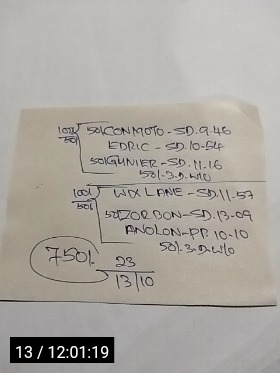 100/- 50/- CONMOTO - SD. 9.46
50/- EDRIC - SD. 10-54
50/- GUNIER - SD. 11-16
50/- 3.D. W/O
100/- WIX LANE - SD. 11-57
50/- 50/- ZORBON - SD. 13-09
ANOLON - PP. 10-10
50/- 3.D. W/O
750/- 23
13/10
13 / 12:01:19